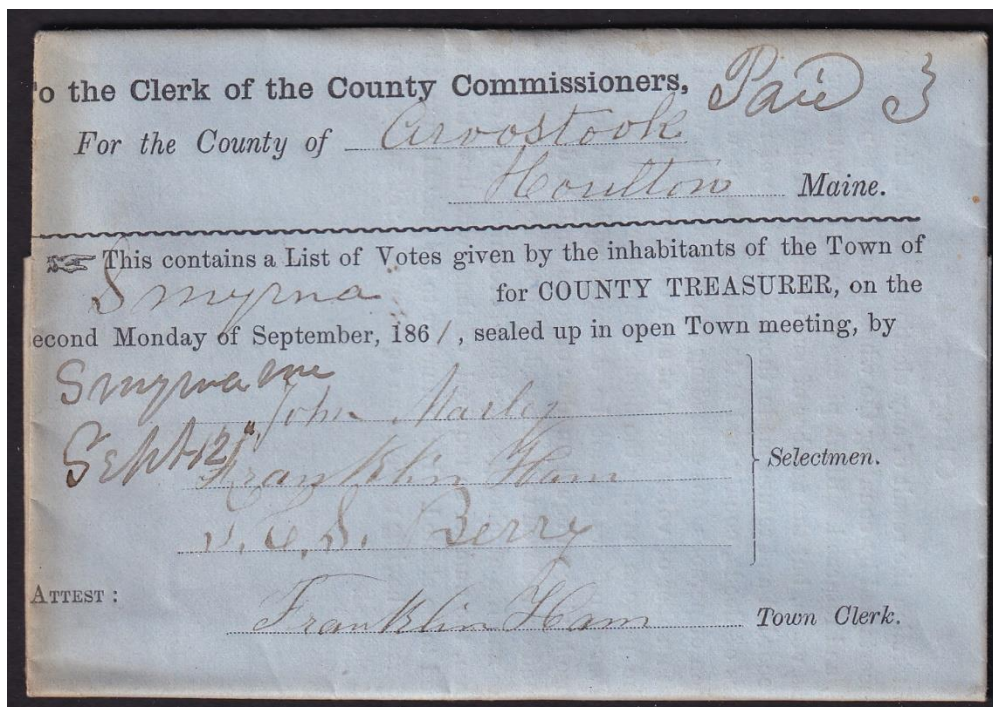 To the Clerk of the County Commissioners, Paid 3
For the County of Aroostook
Houlton Maine.
This contains a List of Votes given by the inhabitants of the Town of
Smyrna for COUNTY TREASURER, on the
econd Monday of September, 1861, sealed up in open Town meeting, by
Smyrna Me
John Marley
Sept 12
Franklin Ham
Selectmen.
Berry
ATTEST :
Franklin Ham Town Clerk.